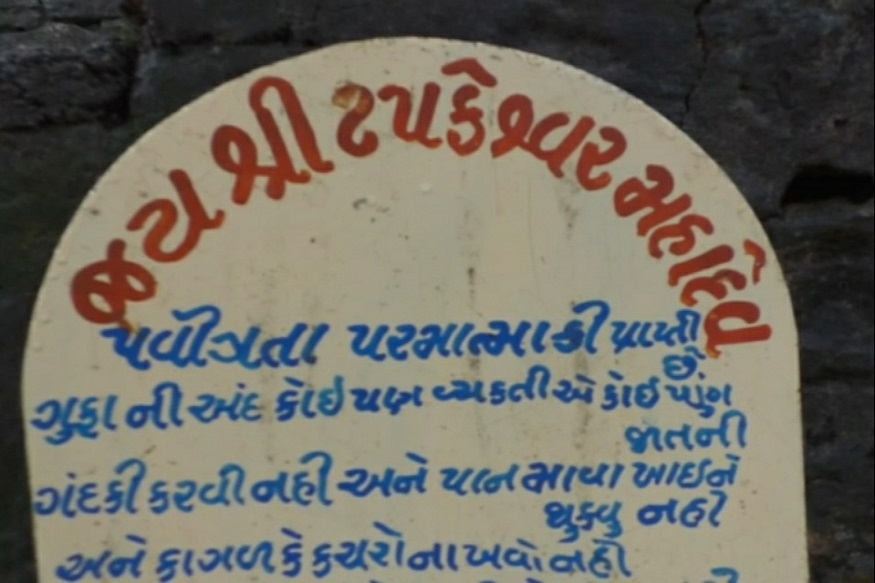 જય શ્રી ટપકેશ્વર મહાદેવ
પવીત્રતા પરમાત્મા કી પ્રાપ્તી
છે.
ગુફા ની અંદ કોઇ પણ વ્યકતી એ કોઈ પણ
જાતની
ગંદકી કરવી નહી અને પાન માવા ખાઇને
થુકવુ નહી
અને કાગળ કે કચરો નાખવો નહી